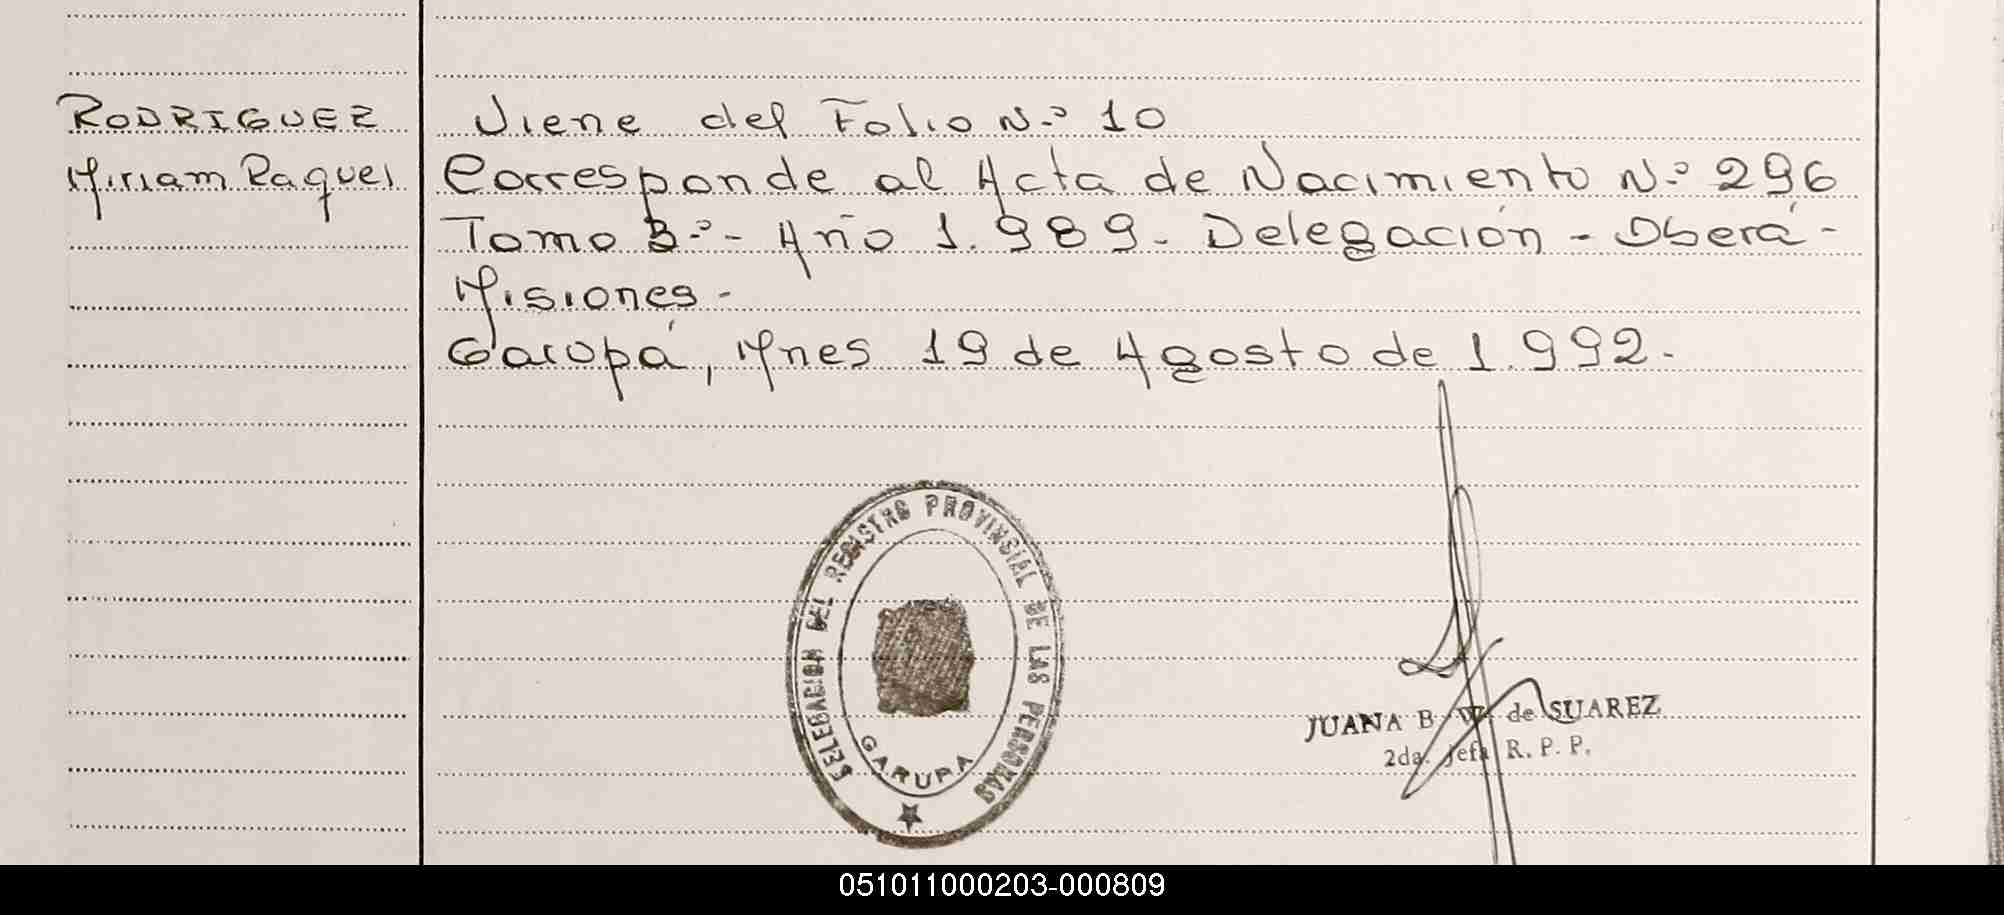 RODRIGUEZ
Miriam Raquel
Viene del Folio N.º 10
Corresponde al Acta de Nacimiento N.º 296
Tomo 3º.- Año 1.989.- Delegación - Oberá -
Misiones -
Garupá, Mnes 19 de Agosto de 1.992.-
DELEGACION DEL REGISTRO PROVINSIAL DE LAS PERSONAS
GARUPA
JUANA B. W. de SUAREZ
2da. Jefa R. P. P.
051011000203-000809